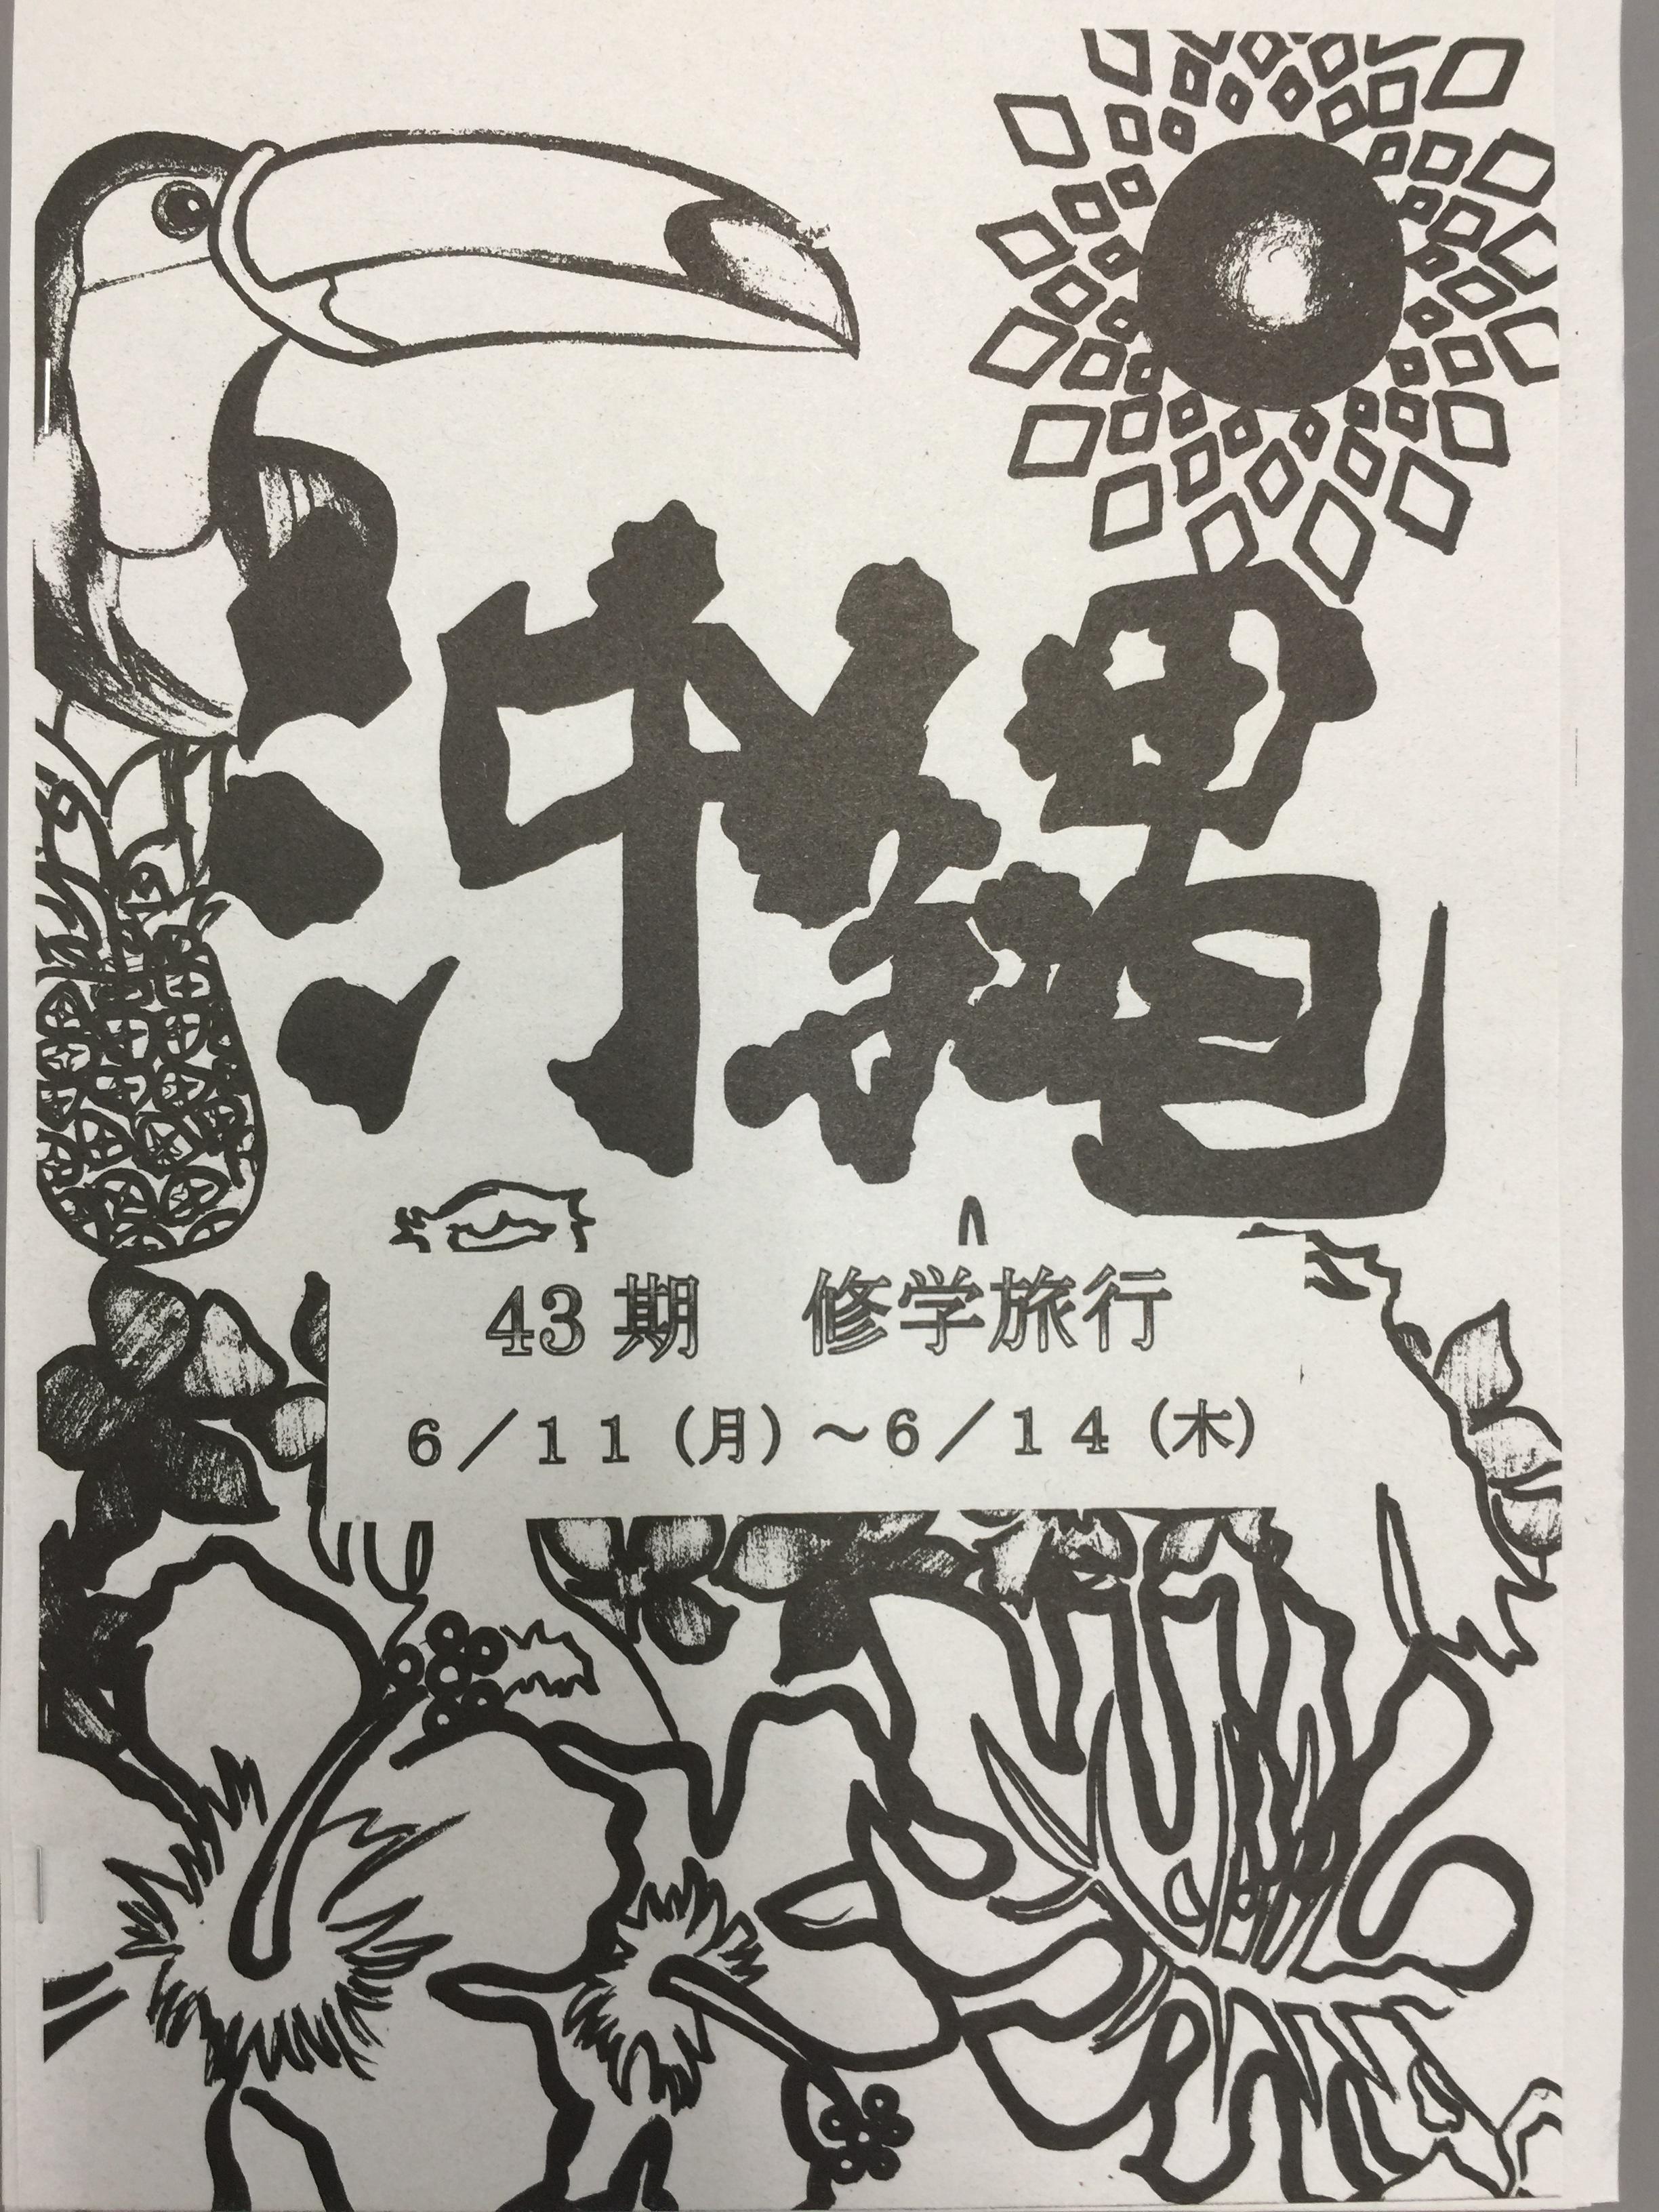 沖縄
43期　修学旅行
６／１１（月）～６／１４（木）